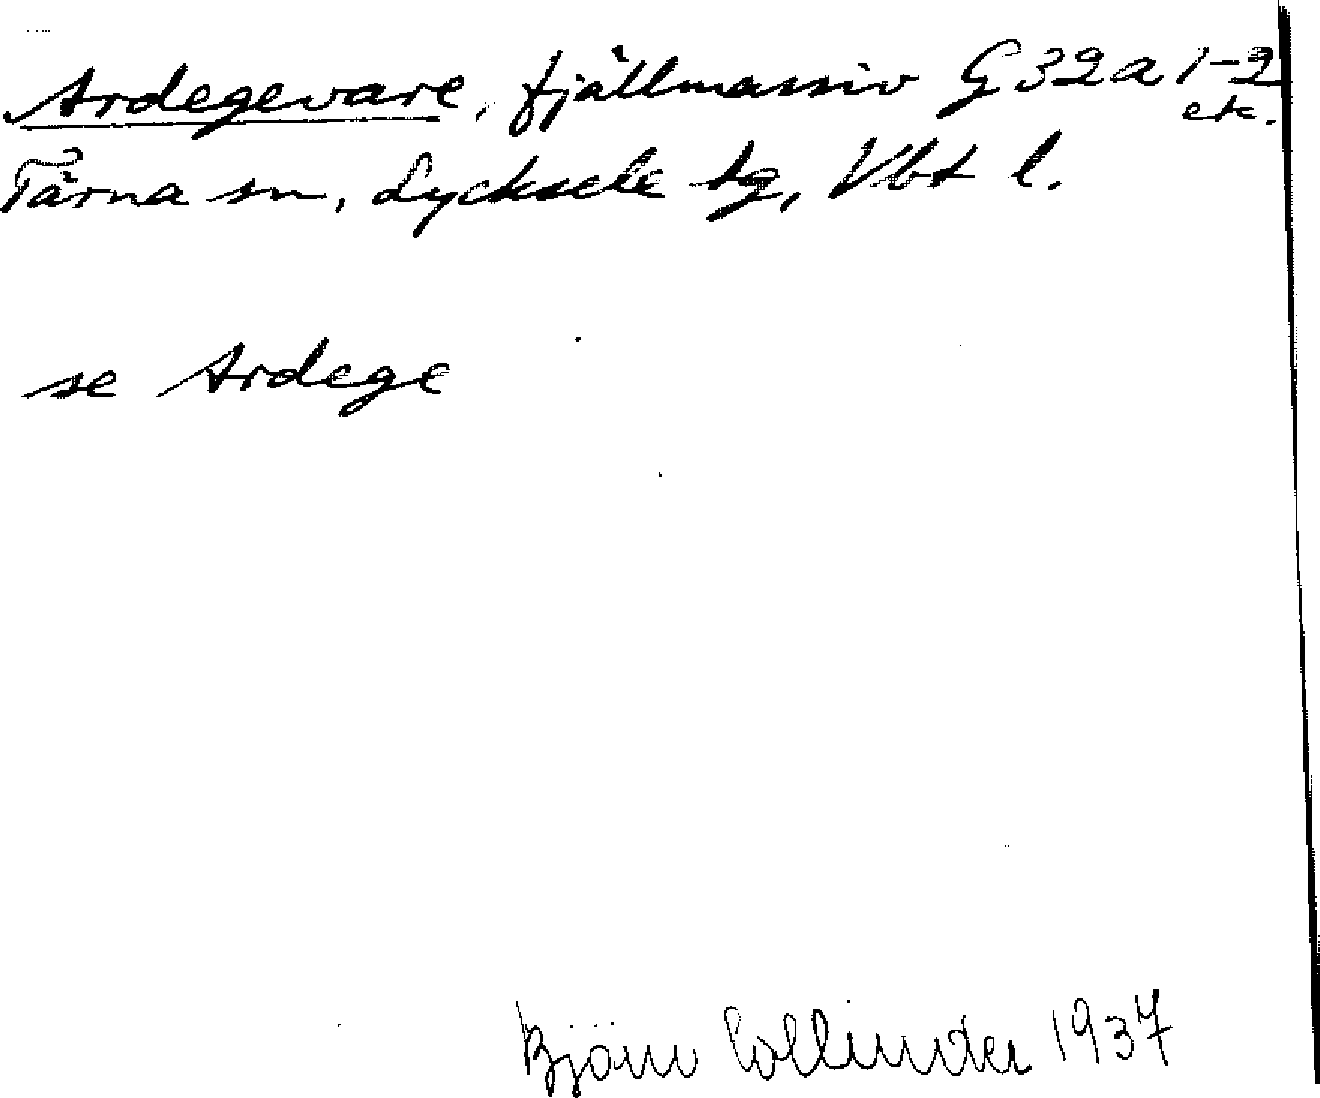 Ardegevare, fjällmassiv G 32a 1-2
etc.
Tärna sn, Lycksele tg, Vbt l.
se Ardege
Björn Collinder 1937